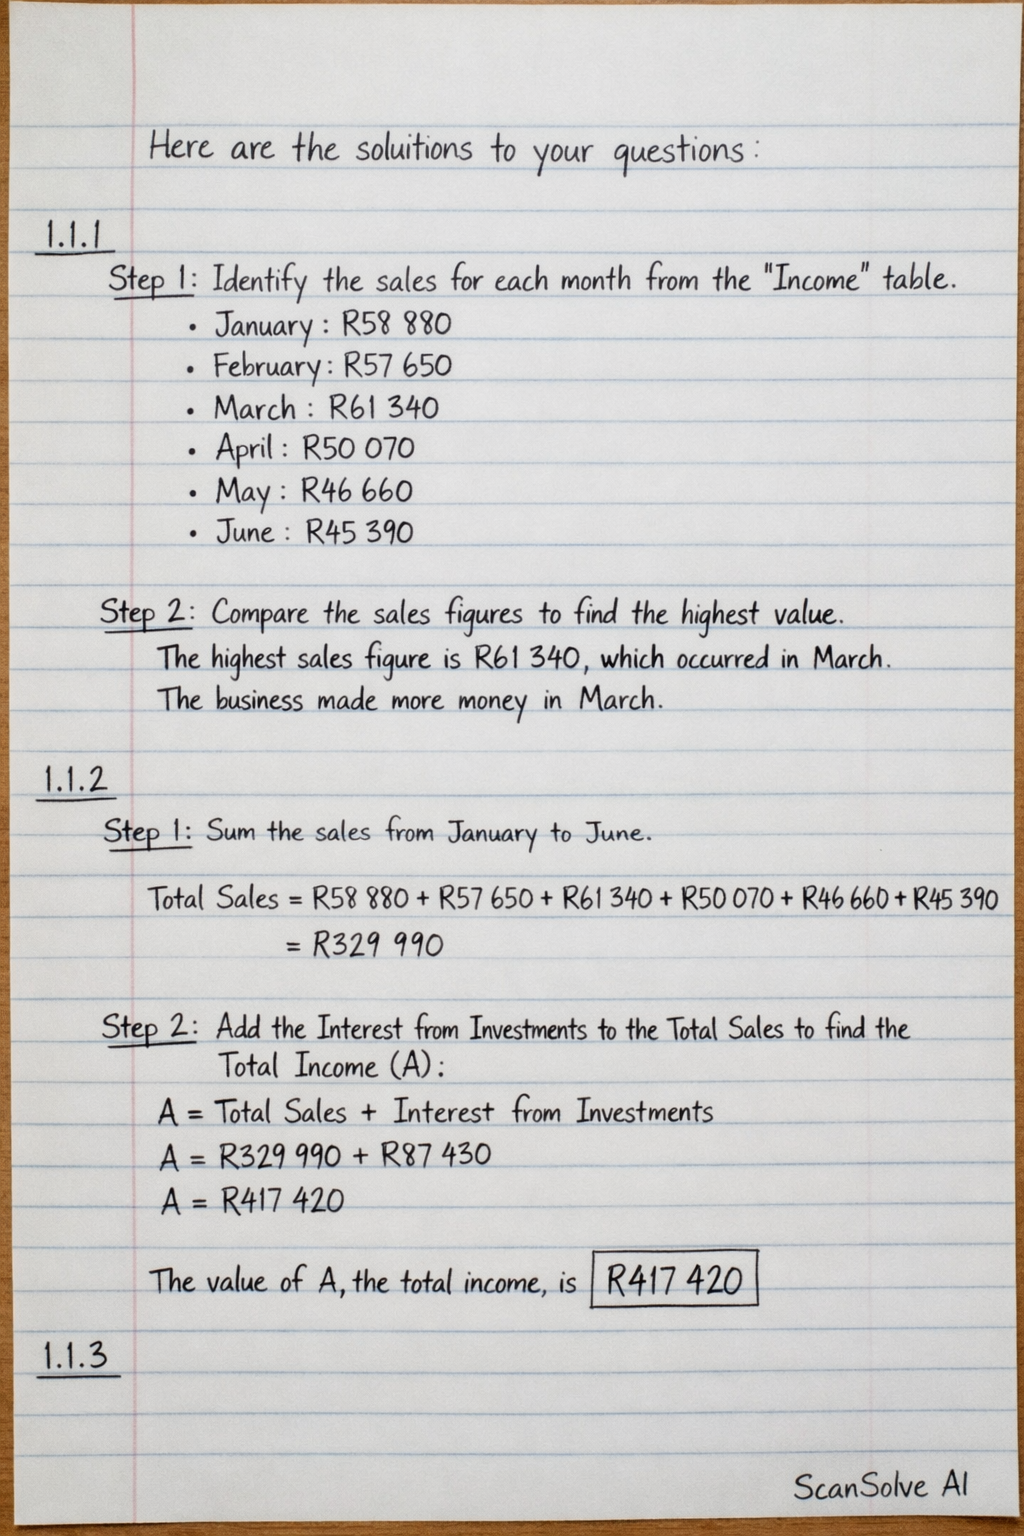 Here are the soluitions to your questions:
1.1.1
Step 1: Identify the sales for each month from the "Income" table.
• January: R58 880
• February: R57 650
• March: R61 340
• April: R50 070
• May: R46 660
• June: R45 390
Step 2: Compare the sales figures to find the highest value.
The highest sales figure is R61 340, which occurred in March.
The business made more money in March.
1.1.2
Step 1: Sum the sales from January to June.
Total Sales = R58 880 + R57 650 + R61 340 + R50 070 + R46 660 + R45 390
= R329 990
Step 2: Add the Interest from Investments to the Total Sales to find the
Total Income (A):
A = Total Sales + Interest from Investments
A = R329 990 + R87 430
A = R417 420
The value of A, the total income, is R417 420
1.1.3
ScanSolve AI